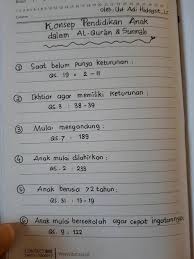 oleh: Ust Adi Hidayat, Lc
Konsep Pendidikan Anak
dalam AL-Qur'an & Sunnah
① Saat belum punya keturunan :
qs. 19 : 2 - 11
② Ikhtiar agar memiliki keturunan :
qs. 3 : 38 - 39
③ Mulai mengandung :
qs. 7 : 189
④ Anak mulai dilahirkan :
qs. 2 : 233
⑤ Anak berusia >2 tahun :
qs. 31 :
⑥ Anak mulai bersekolah agar cepat ingatannya :
qs. 9 : 122